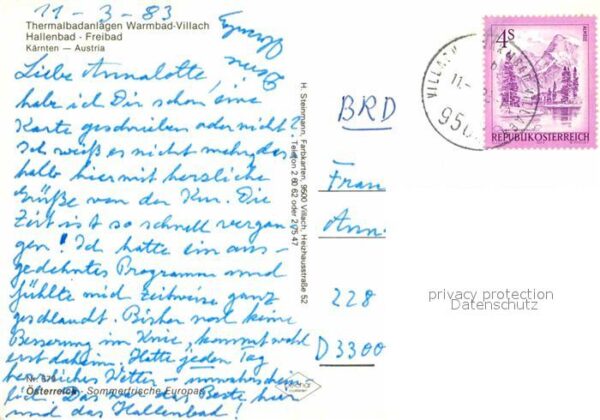 11-3-83
Thermalbadanlagen Warmbad-Villach
Hallenbad · Freibad
Kärnten — Austria
Liebe Annalotte,
habe ich Dir schon eine
Karte geschrieben oder nicht?
Ich weiß es nicht mehr, des-
halb hier mit herzliche
Grüße von der Kur. Die
Zeit ist so schnell vergan
gen! Ich hatte ein aus-
gedehntes Programm und
fühlte mich zeitweise ganz
geschlaucht. Bisher noch keine
Besserung im Knie, kommt wohl
erst daheim. Hatte jeden Tag
herrliches Wetter – unwahrschein
lich! Das ist das Beste, hier
und das Hallenbad!
Deine
Nr. 679
Österreich - Sommerfrische Europas
H. Steinmann, Farbkarten, 9500 Villach, Heizhausstraße 52
Telefon 2 60 62 oder 2 75 47
BRD
Frau
Ann.
228
D 3300
4S
ALMSEE
REPUBLIK ÖSTERREICH
VILLACH
11.
950
privacy protection
Datenschutz